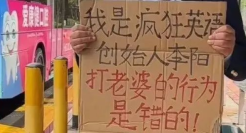 爱康健口腔
我是疯狂英语
创始人李阳
打老婆的行为
是错的!